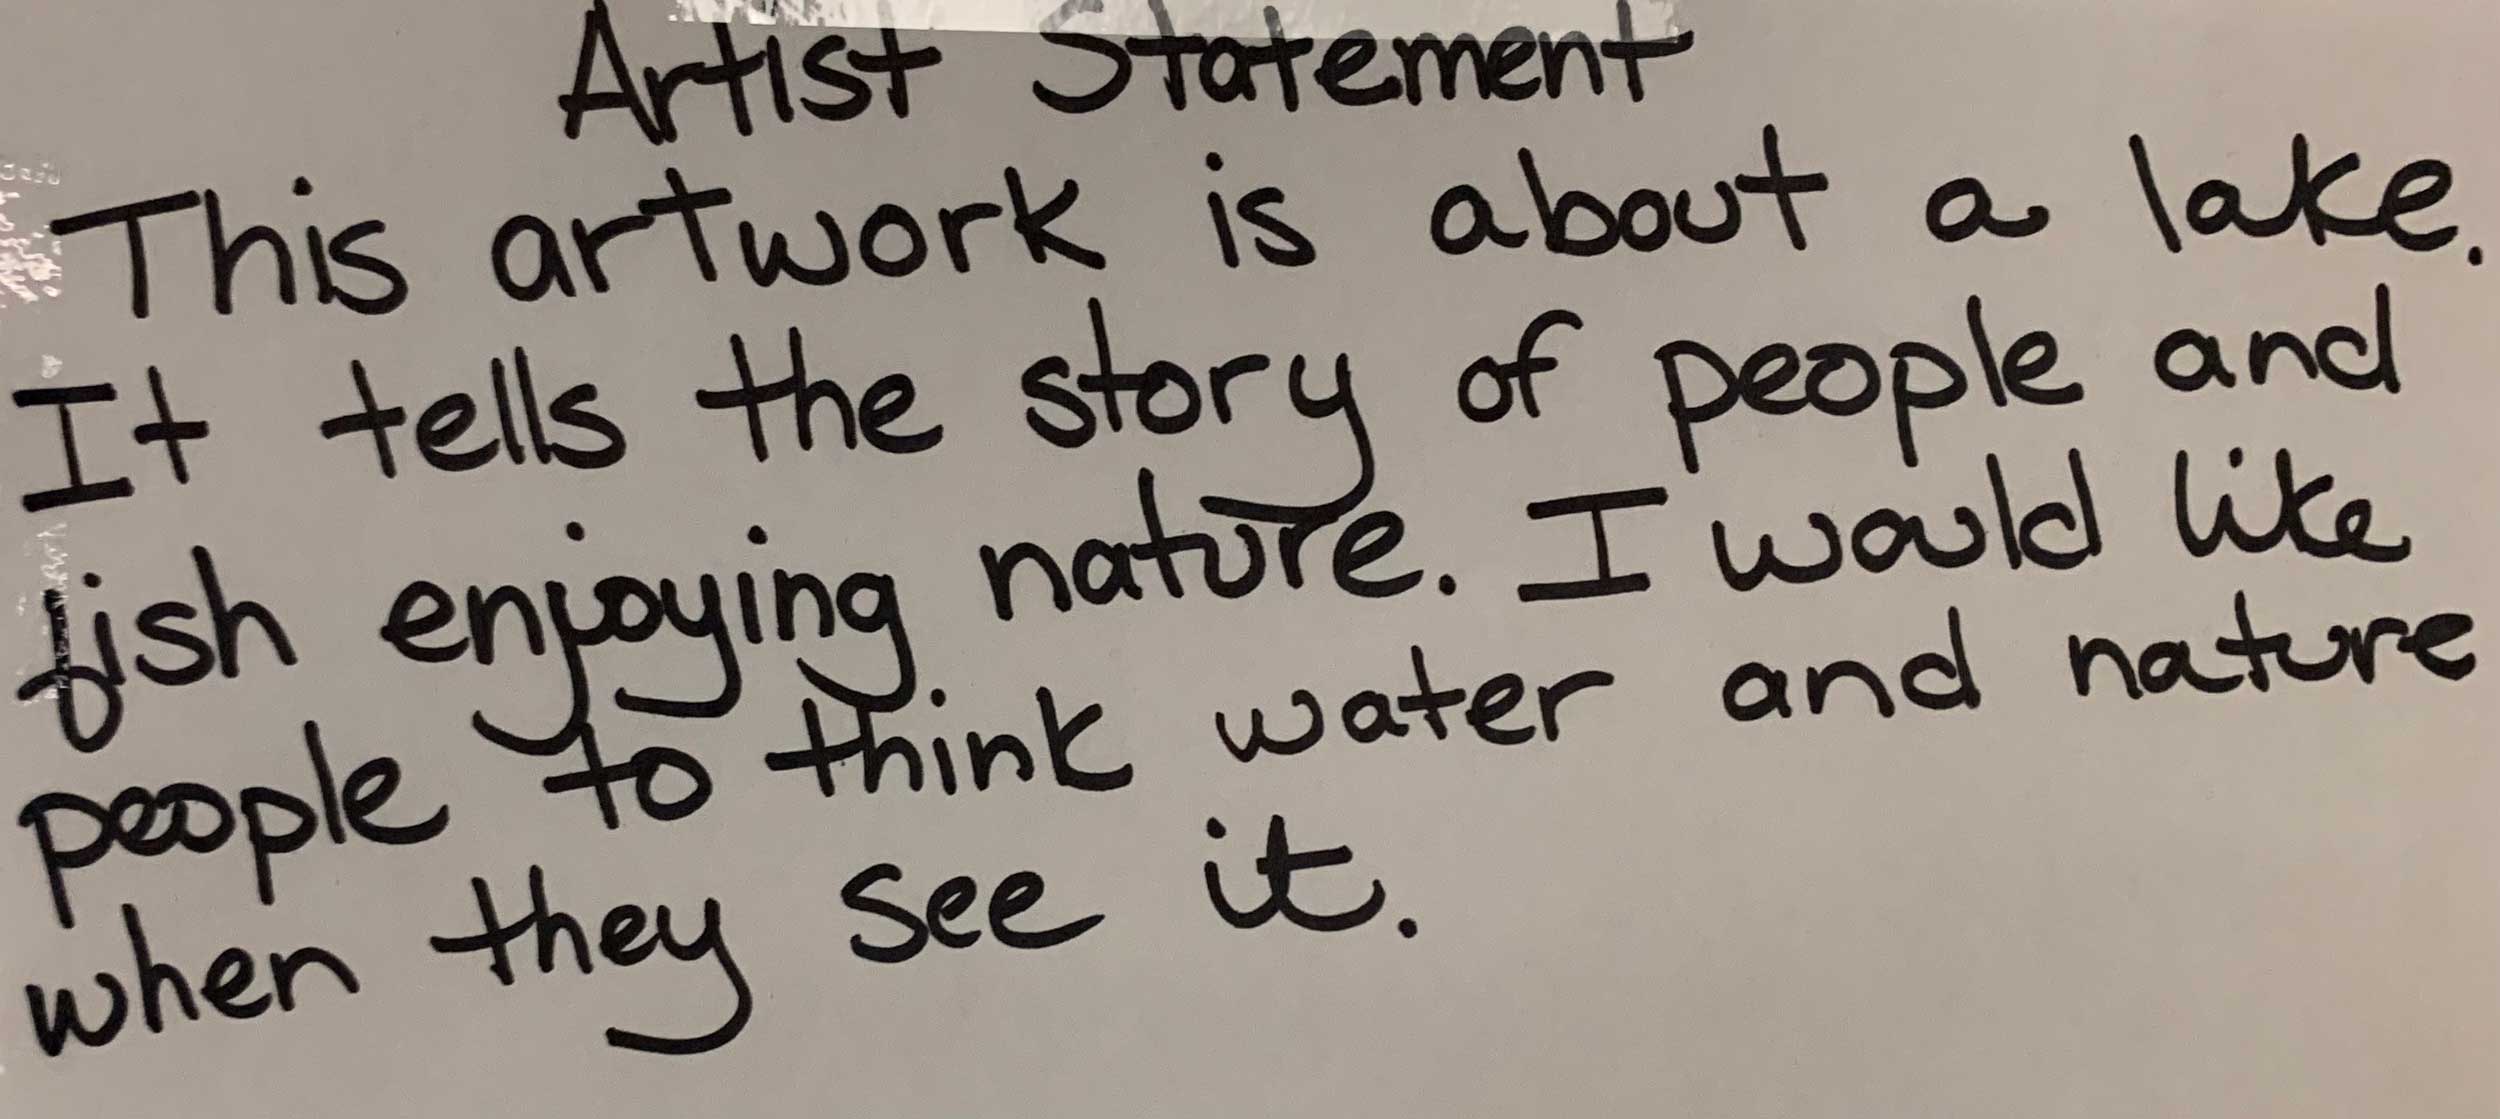 Artist Statement
This artwork is about a lake.
It tells the story of people and
fish enjoying nature. I would like
people to think water and nature
when they see it.